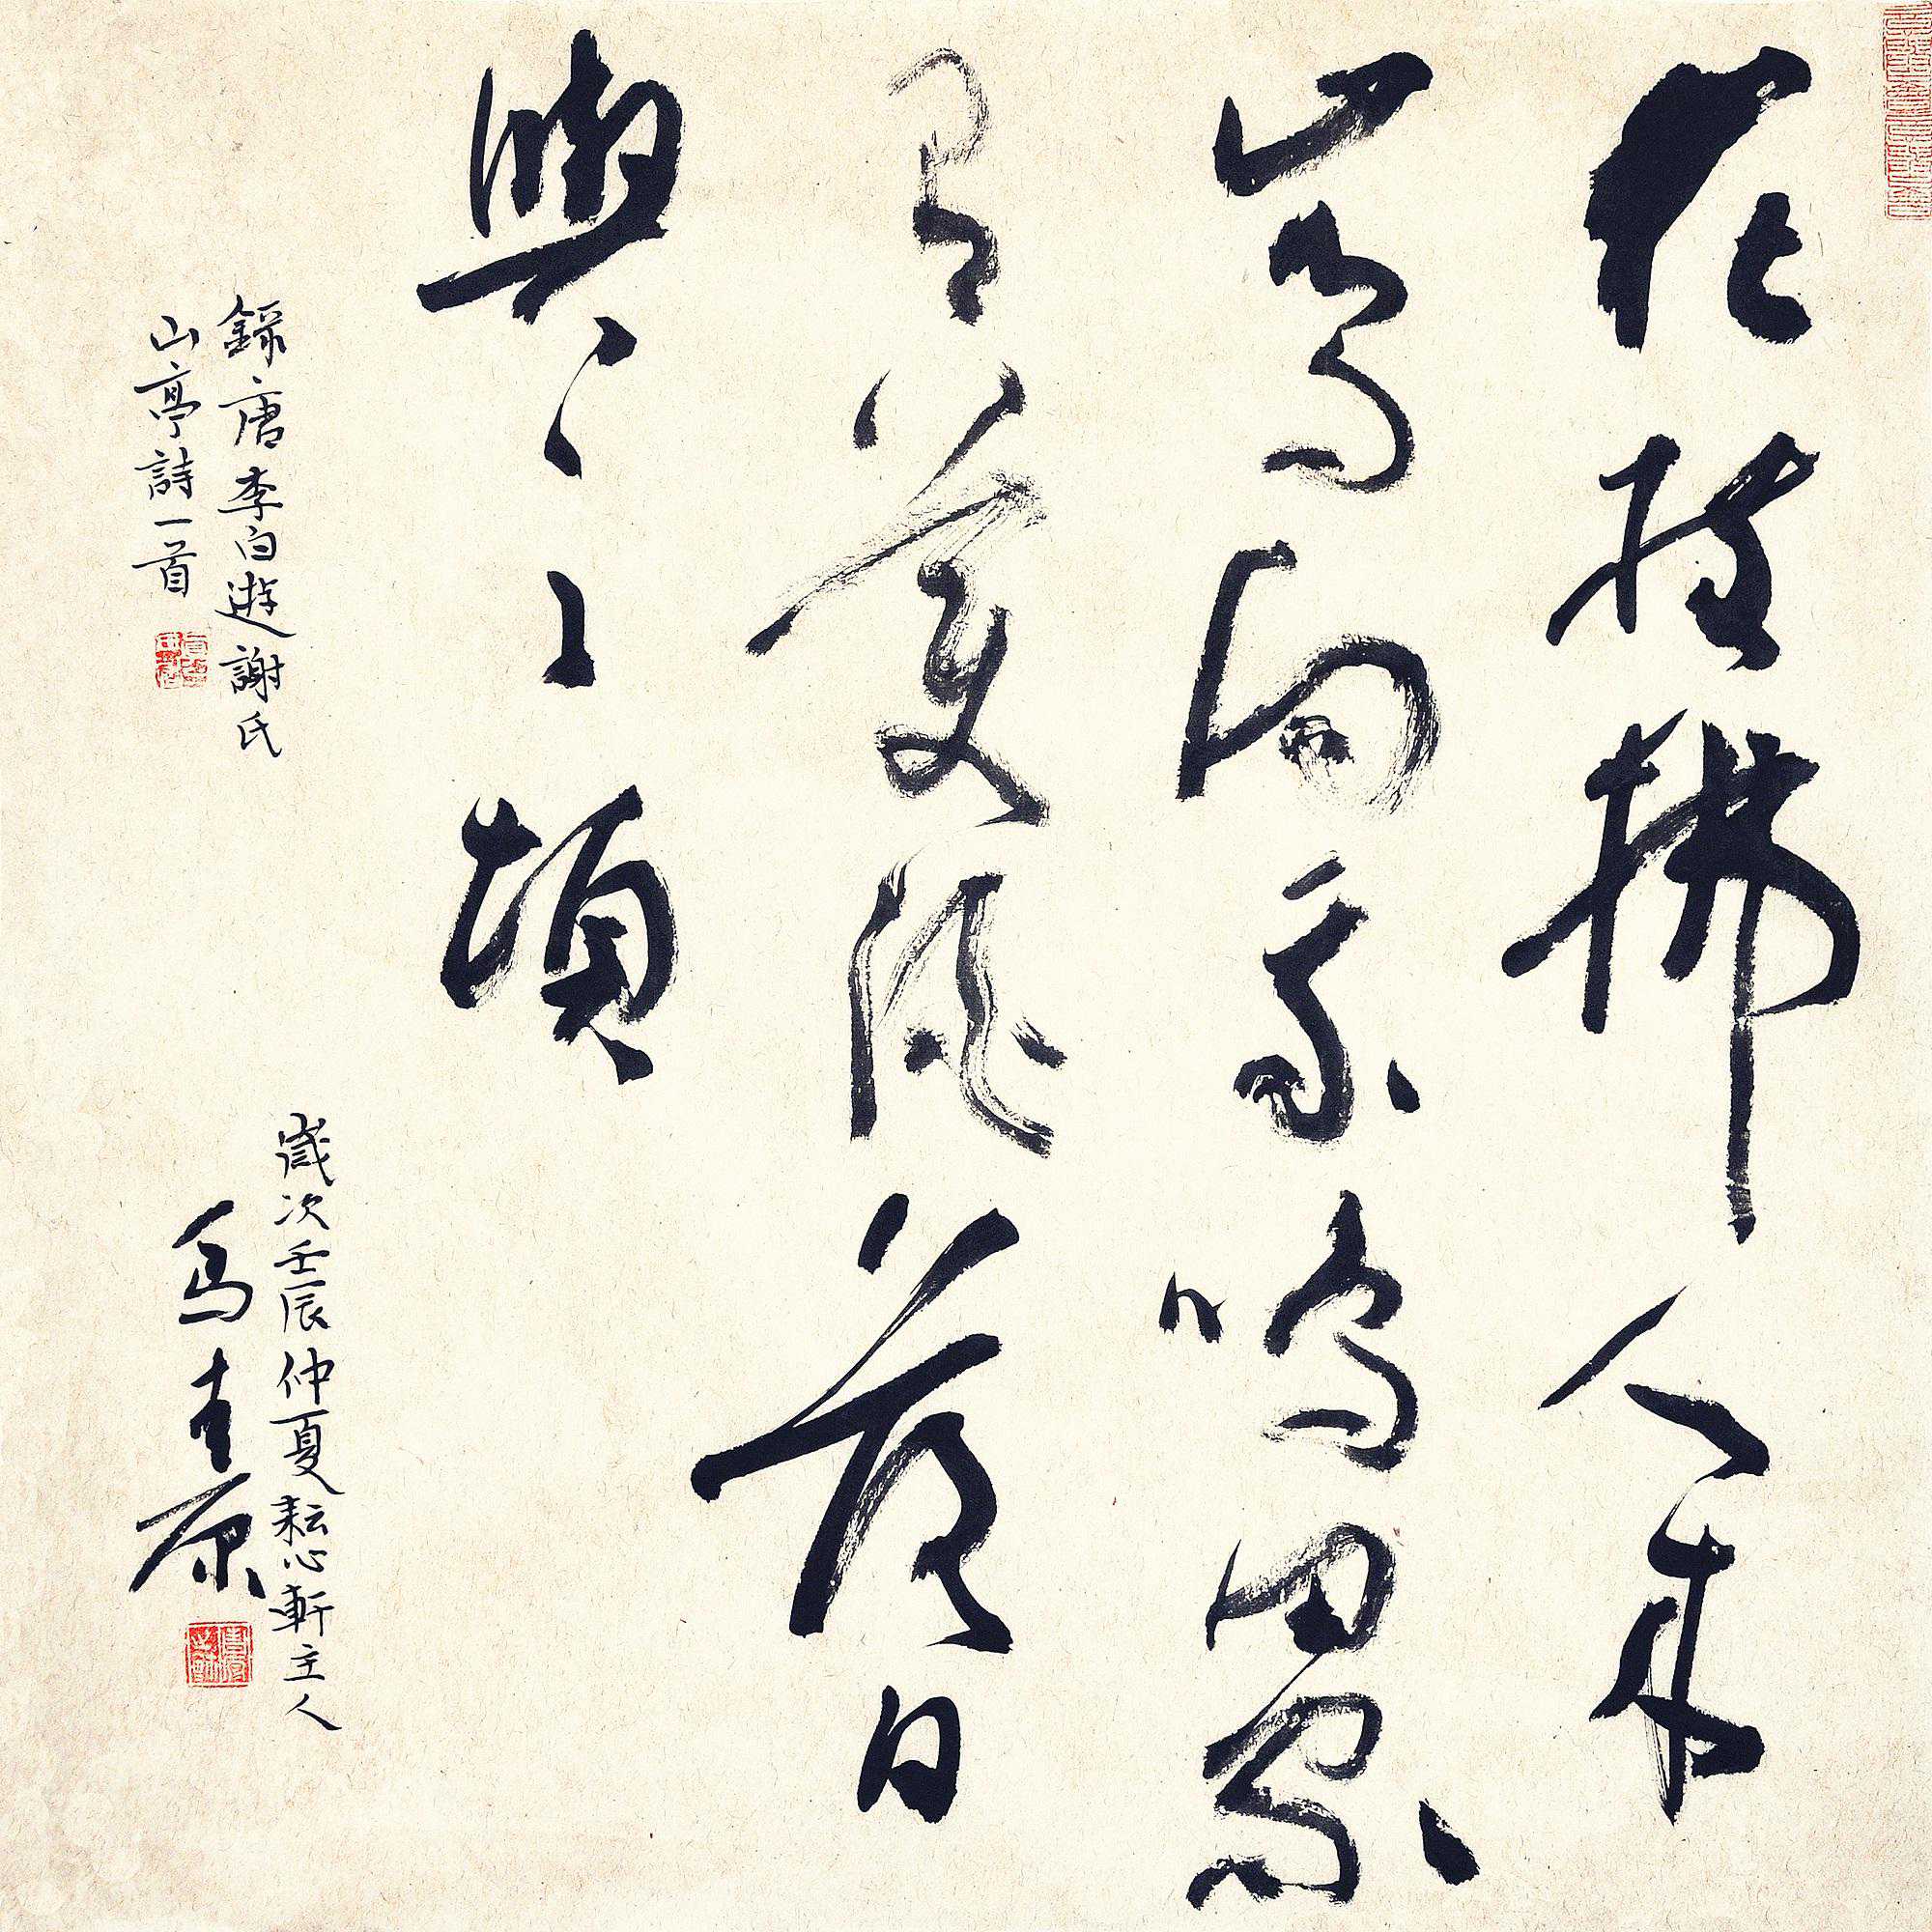 花枝拂人來
山鳥向我鳴田家
有美酒落日
與之傾
錄唐李白遊謝氏
山亭詩一首
歲次壬辰仲夏耘心軒主人